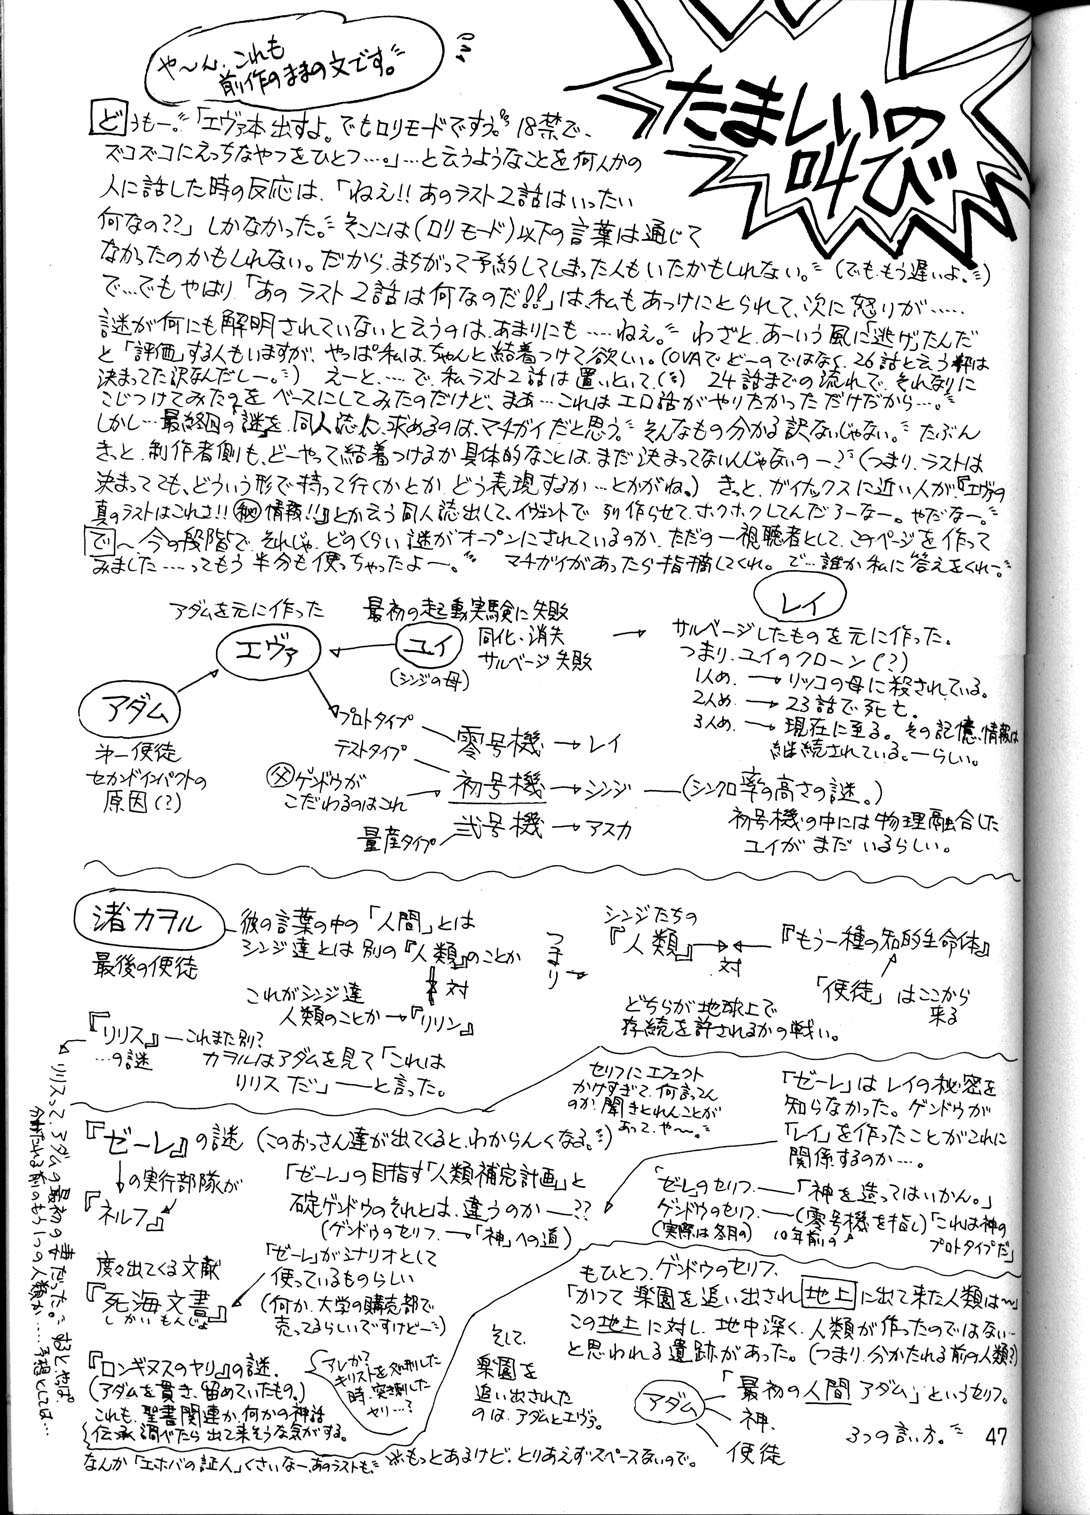 たましいの
叫び
や〜ん、これも
前作のままの文です。
どうもー。「エヴァ本出すよ。でもロリモードですぅ。18禁で、
ズコズコにえっちなやつをひとつ…。」…と云うようなことを何人かの
人に話した時の反応は、「ねえ!!あのラスト2話はいったい
何なの??」しかなかった。そこには(ロリモード)以下の言葉は通じて
なかったのかもしれない。だから、まちがって予約してしまった人もいたかもしれない。(でも、もう遅いよ。)
で…でもやはり「あのラスト2話は何なのだ!!」は、私もあっけにとられて、次に怒りが……
謎が何にも解明されていないと云うのは、あまりにも……ねえ。わざと、あーいう風に「逃げ」たんだ
と「評価」する人もいますが、やっぱ私は、ちゃんと結着つけて欲しい。(OVAでどーのではなく、26話と云う枠は
決まってた訳なんだしー。) えーと、…で、私、ラスト2話は置いといて、() 24話までの流れで、それなりに
こじつけてみたのをベースにしてみたのだけど、まぁ…これはエロ話がやりたかっただけだから…。
しかし…最終回の「謎」を、同人誌に求めるのは、マチガイだと思う。そんなもの分かる訳ないじゃない。たぶん
きっと、制作者側も、どーやって結着つけるか具体的なことは、まだ決まってないんじゃないのー?(つまり、ラストは
決まってても、どういう形で持って行くかとか、どう表現するか…とかがね。) きっと、ガイナックスに近い人が『エヴァの
真のラストはこれさ!!㊙情報!!』とか云う同人誌出して、イヴェントで列作らせて、ホクホクしてんだろーなー。やだなー。
で〜、今の段階で、それじゃ、どのくらい謎がオープンにされているのか、ただの一視聴者として、このページを作って
みました……ってもう半分も使っちゃったよー。 マチガイがあったら指摘してくれ。で…誰か私に答えをくれー。
アダムを元に作った
エヴァ
最初の起動実験に失敗
ユイ
同化、消失
サルベージ失敗
(シンジの母)
レイ
サルベージしたものを元に作った。
つまり、ユイのクローン(?)
1人め→リツコの母に殺されている。
2人め→23話で死亡。
3人め→現在に至る。その記憶、情報は
継続されている。—らしい。
アダム
第一使徒
セカンドインパクトの
原因(?)
プロトタイプ 零号機→レイ
テストタイプ 初号機→シンジ—(シンクロ率の高さの謎。)
㊛ゲンドウが
こだわるのはこれ
量産タイプ 弐号機→アスカ
初号機の中には物理融合した
ユイがまだいるらしい。
渚カヲル
最後の使徒
彼の言葉の中の「人間」とは
シンジ達とは別の『人類』のことか
対
これがシンジ達
人類のことか→『リリン』
つまり→
シンジたちの
『人類』→←『もう一種の知的生命体』
対
「使徒」はここから
来る
どちらが地球上で
存続を許されるかの戦い。
『リリス』—これまた別?
…の謎
カヲルはアダムを見て「これは
リリスだ」—と言った。
リリスって、アダムの最初の妻だった。
分かたれる前のもう1つの人類か……予想としては…
『ゼーレ』の謎(このおっさん達が出てくると、わからんくなる。)
↓の実行部隊が
『ネルフ』
「ゼーレ」の目指す「人類補完計画」と
碇ゲンドウのそれとは、違うのか—??
(ゲンドウのセリフ—「神」への道)
セリフにエフェクト
かけすぎて、何言ってん
のか聞きとれんことが
あって、や〜。
「ゼーレ」はレイの秘密を
知らなかった。ゲンドウが
「レイ」を作ったことがこれに
関係するのか…。
「ゼーレ」のセリフ—「神を造ってはいかん。」
ゲンドウのセリフ—(零号機を指し)「これは神の
プロトタイプだ」
(実際は冬月の) 10年前の
度々出てくる文献
『死海文書』
しかい もんじょ
「ゼーレ」がシナリオとして
使っているものらしい
(何か、大学の購売部で
売ってるらしいですけどー)
もひとつ、ゲンドウのセリフ、
「かつて楽園を追い出され地上に出て来た人類は〜」
この地上に対し、地中深く、人類が作ったのではない…
と思われる遺跡があった。(つまり、分かたれる前の人類?)
『ロンギヌスのヤリ』の謎。
(アダムを貫き、留めていたもの。)
これも、聖書関連か、何かの神話
伝承調べたら出て来そうな気がする。
アレか?
キリストを処刑した
時、突き刺した
ヤリ…?
そして、
楽園を
追い出された
のは、アダムとエヴァ。
アダム
「最初の人間アダム」というセリフ。
神
使徒
3つの言い方。
なんか「エホバの証人」くさいなー、あのラストも、
※もっとあるけど、とりあえずスペースないので。
47